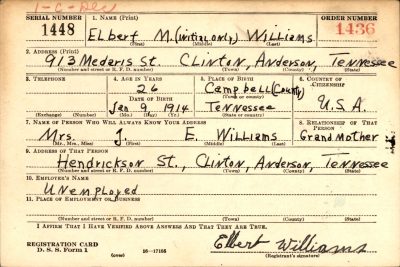 1-C-Dec
SERIAL NUMBER 1. NAME (Print) ORDER NUMBER
1448 ELbert M. (initial only) Williams 1436
(First) (Middle) (Last)
2. ADDRESS (Print)
913 Medaris St. Clinton, Anderson, Tennessee
(Number and street or R. F. D. number) (Town) (County) (State)
3. TELEPHONE 4. AGE IN YEARS 5. PLACE OF BIRTH 6. COUNTRY OF CITIZENSHIP
26 Campbell (County)
(Town or county)
DATE OF BIRTH
Jan 9, 1914 Tennessee U.S.A.
(Exchange) (Number) (Mo.) (Day) (Yr.) (State or country)
7. NAME OF PERSON WHO WILL ALWAYS KNOW YOUR ADDRESS 8. RELATIONSHIP OF THAT PERSON
Mrs. J. E. Williams Grandmother
(Mr., Mrs., Miss) (First) (Middle) (Last)
9. ADDRESS OF THAT PERSON
Hendrickson St., Clinton, Anderson, Tennessee
(Number and street or R. F. D. number) (Town) (County) (State)
10. EMPLOYER'S NAME
Unemployed
11. PLACE OF EMPLOYMENT OR BUSINESS
(Number and street or R. F. D. number) (Town) (County) (State)
I AFFIRM THAT I HAVE VERIFIED ABOVE ANSWERS AND THAT THEY ARE TRUE.
REGISTRATION CARD
D. S. S. Form 1 (over) 16—17105 Elbert Williams
(Registrant's signature)